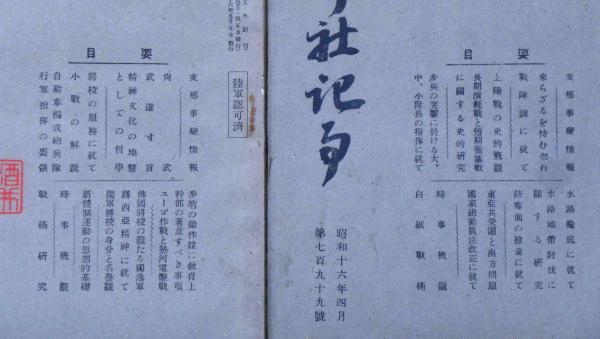 要目
支那事變情報
來らざるを恃む勿れ
戰陣訓に就て
上陸戰の史的概觀
長期消耗戰と短期殲滅戰
に關する史的研究
步兵の突擊に於ける大、
中、小隊長の指揮に就て
水路輸送に就て
水路地帶討伐に
關する研究
防毒面の檢查に就て
東亞共榮圈と南方問題
國家總動員法改正に就て
時事概觀
白紙戰術
昭和十六年四月
第七百九十九號
社記事
陸軍認可濟
要目
支那事變情報
尚武
武道寸言
精神文化の地盤
としての哲學
將校の服務に就て
小戰の解說
自動車編成砲兵隊
行軍指揮の要領
步哨の動作竝に教育上
幹部の著意すべき事項
ユーゴ作戰と熱河電擊戰
佛國將校の觀たる獨逸軍
露西亞精神に就て
獨軍將校の身分と名譽觀
新體制運動の思想的基礎
時事概觀
戰術研究
酒井